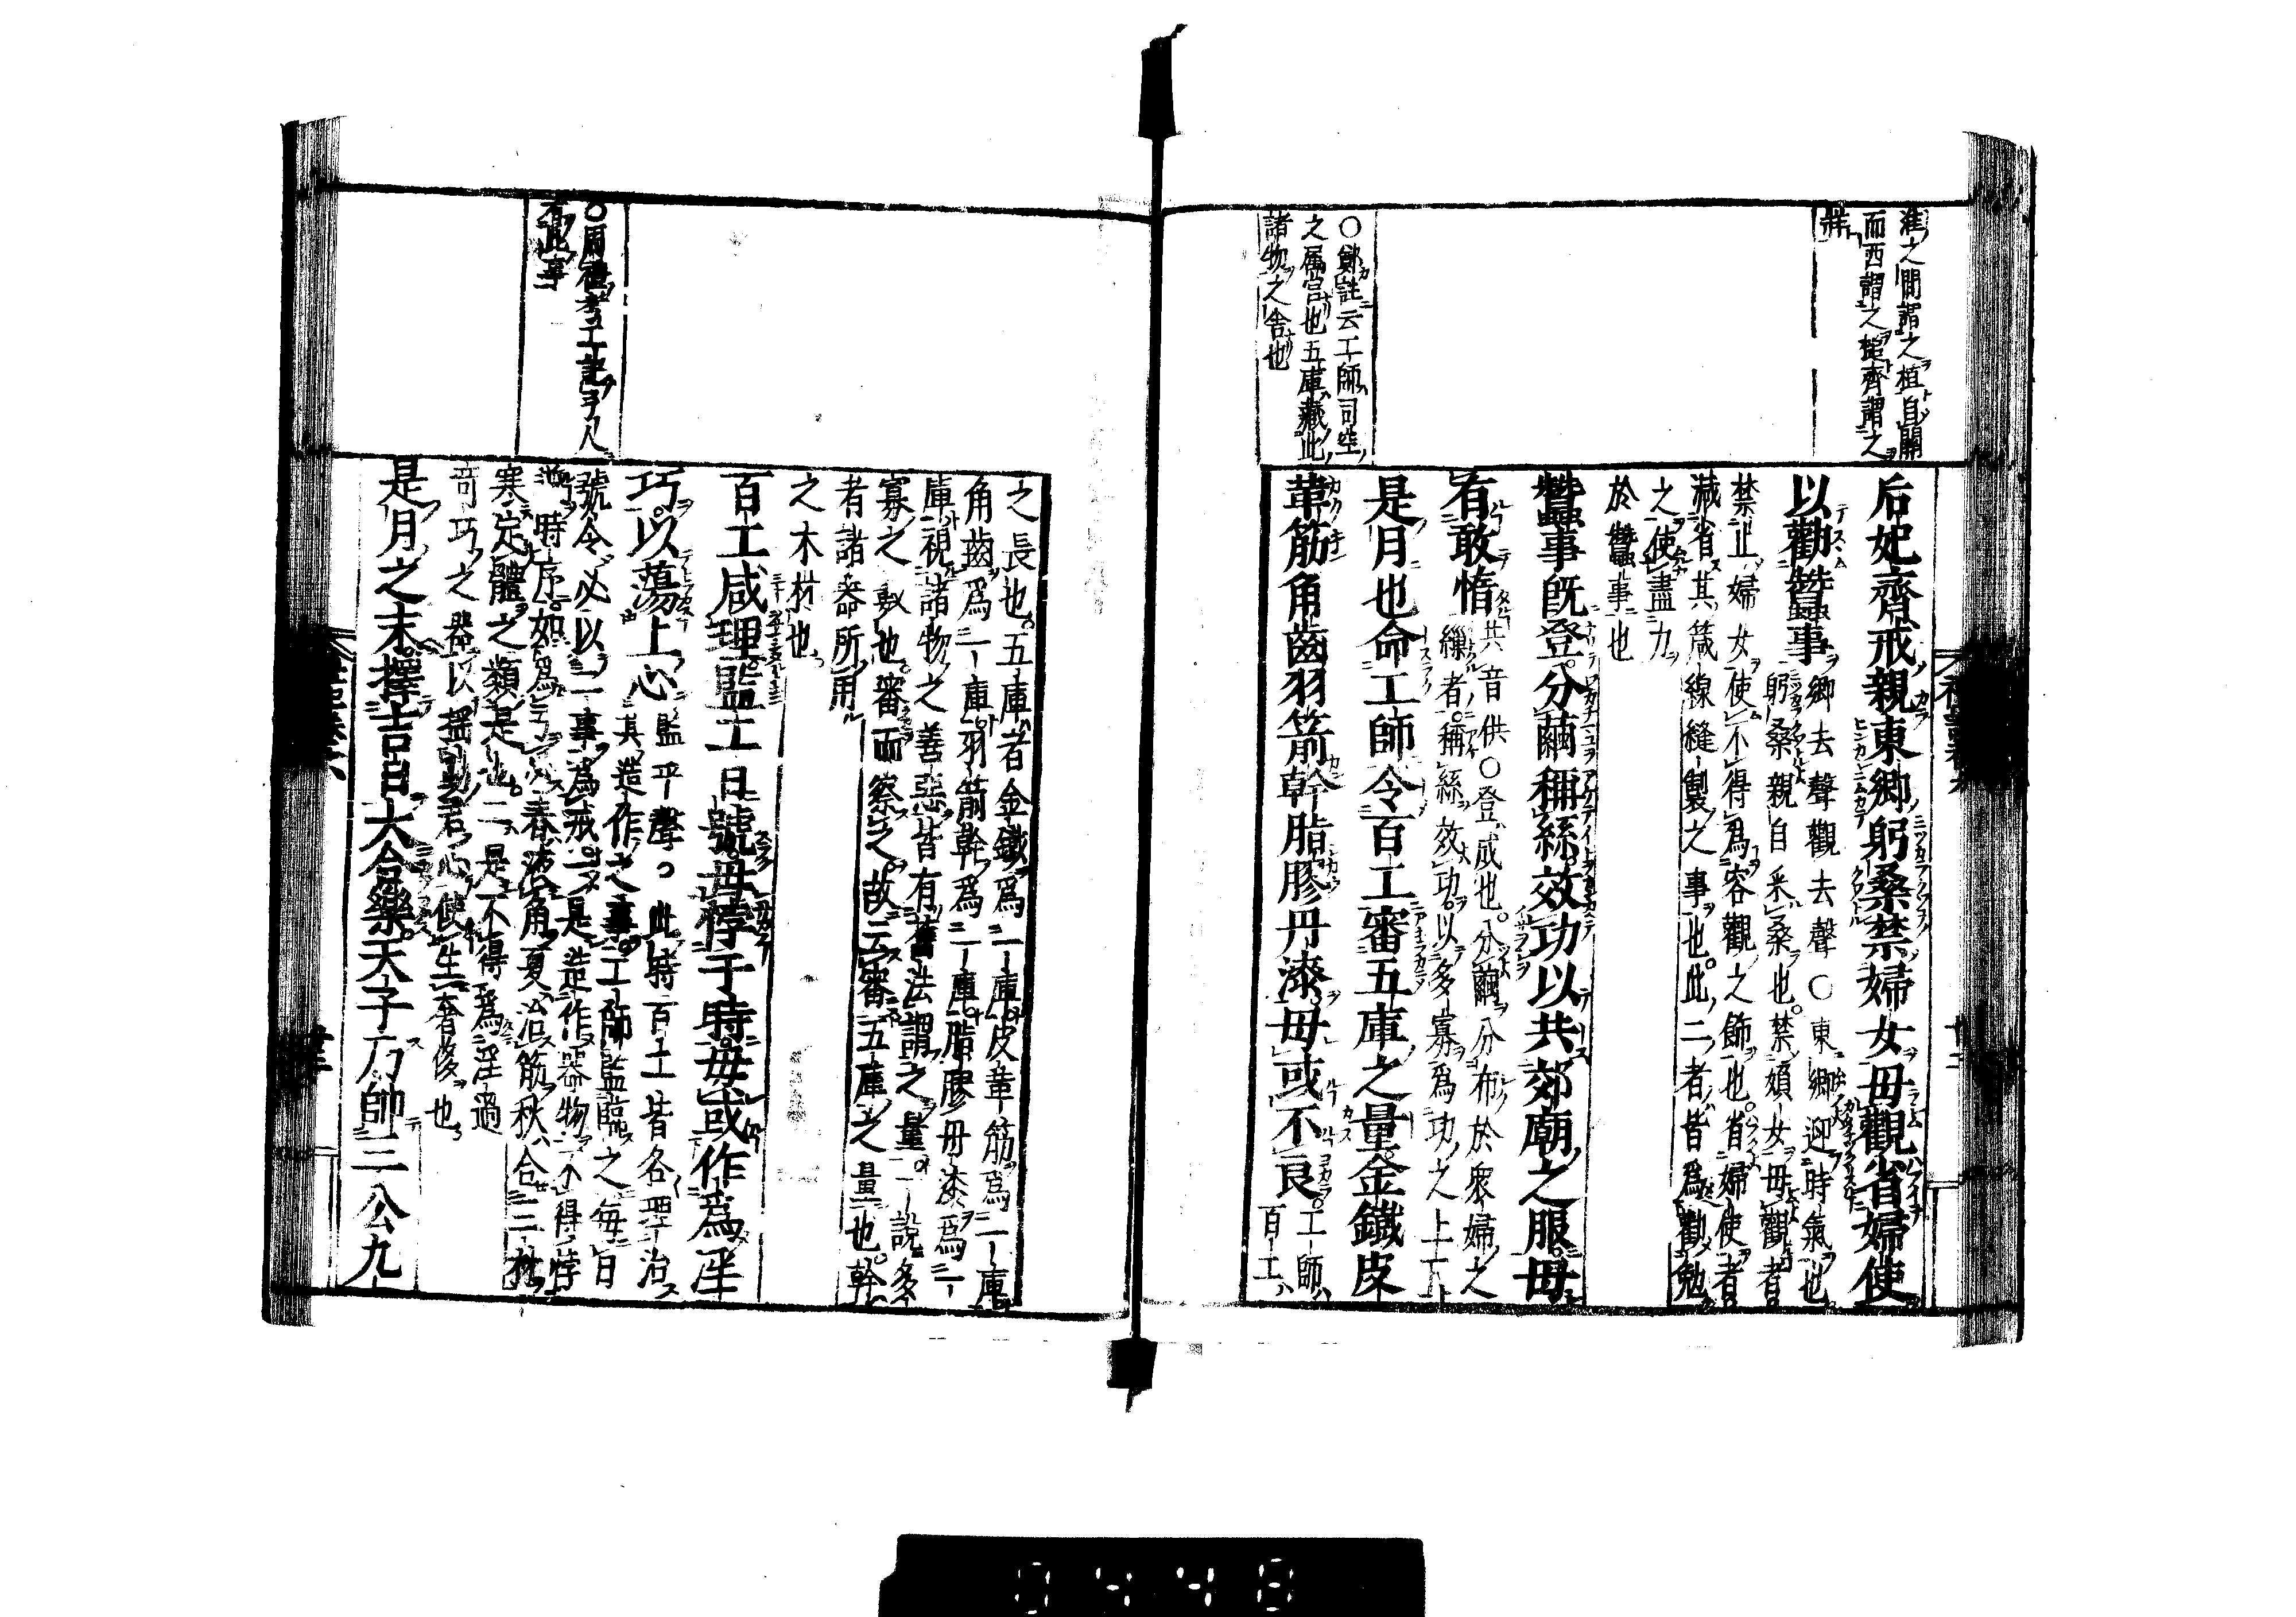 淮之間謂之植自關
而西謂之㭙齊謂之
后妃齊戒親東郷躬桑禁婦女毋觀省婦使
以勸蠶事
郷去聲觀去聲○東郷迎時氣也
躬桑親自采桑也禁婦女毋觀者
禁止婦女使不得為容觀之飾也省婦使者
減省其箴線縫製之事也此二者皆爲勸勉
之使盡力
於蠶事也
蠶事既登分繭稱絲效功以共郊廟之服毋
有敢惰
共音供○登成也分繭分布於衆婦之
繅者稱絲效功以多寡爲功之上下
○鄭註云工師司空
之属官也五庫藏此
諸物之舍也
是月也命工師令百工審五庫之量金鐵皮
革筋角齒羽箭幹脂膠丹漆毋或不良
工師
百工
之長也五庫者金鐵爲一庫皮革筋爲一庫
角齒爲一庫羽箭幹爲一庫脂膠丹漆爲一
庫視諸物之善惡皆有舊法謂之量一說多
寡之数也審而察之故云審五庫之量也幹
者諸器所用
之木材也
○周禮考工記弓人
有此事
百工咸理監工日號毋悖于時毋或作爲淫
巧以蕩上心
監平聲○此時百工皆各理治
其造作之事工師監臨之毎日
號令必以二事為戒一是造作器物不得悖
時序如爲弓必春液角夏治筋秋合三材
寒定體之類是也二是不得爲淫過
奇巧之器以揺動君心使生奢侈也
是月之末擇吉日大合樂天子乃帥三公九